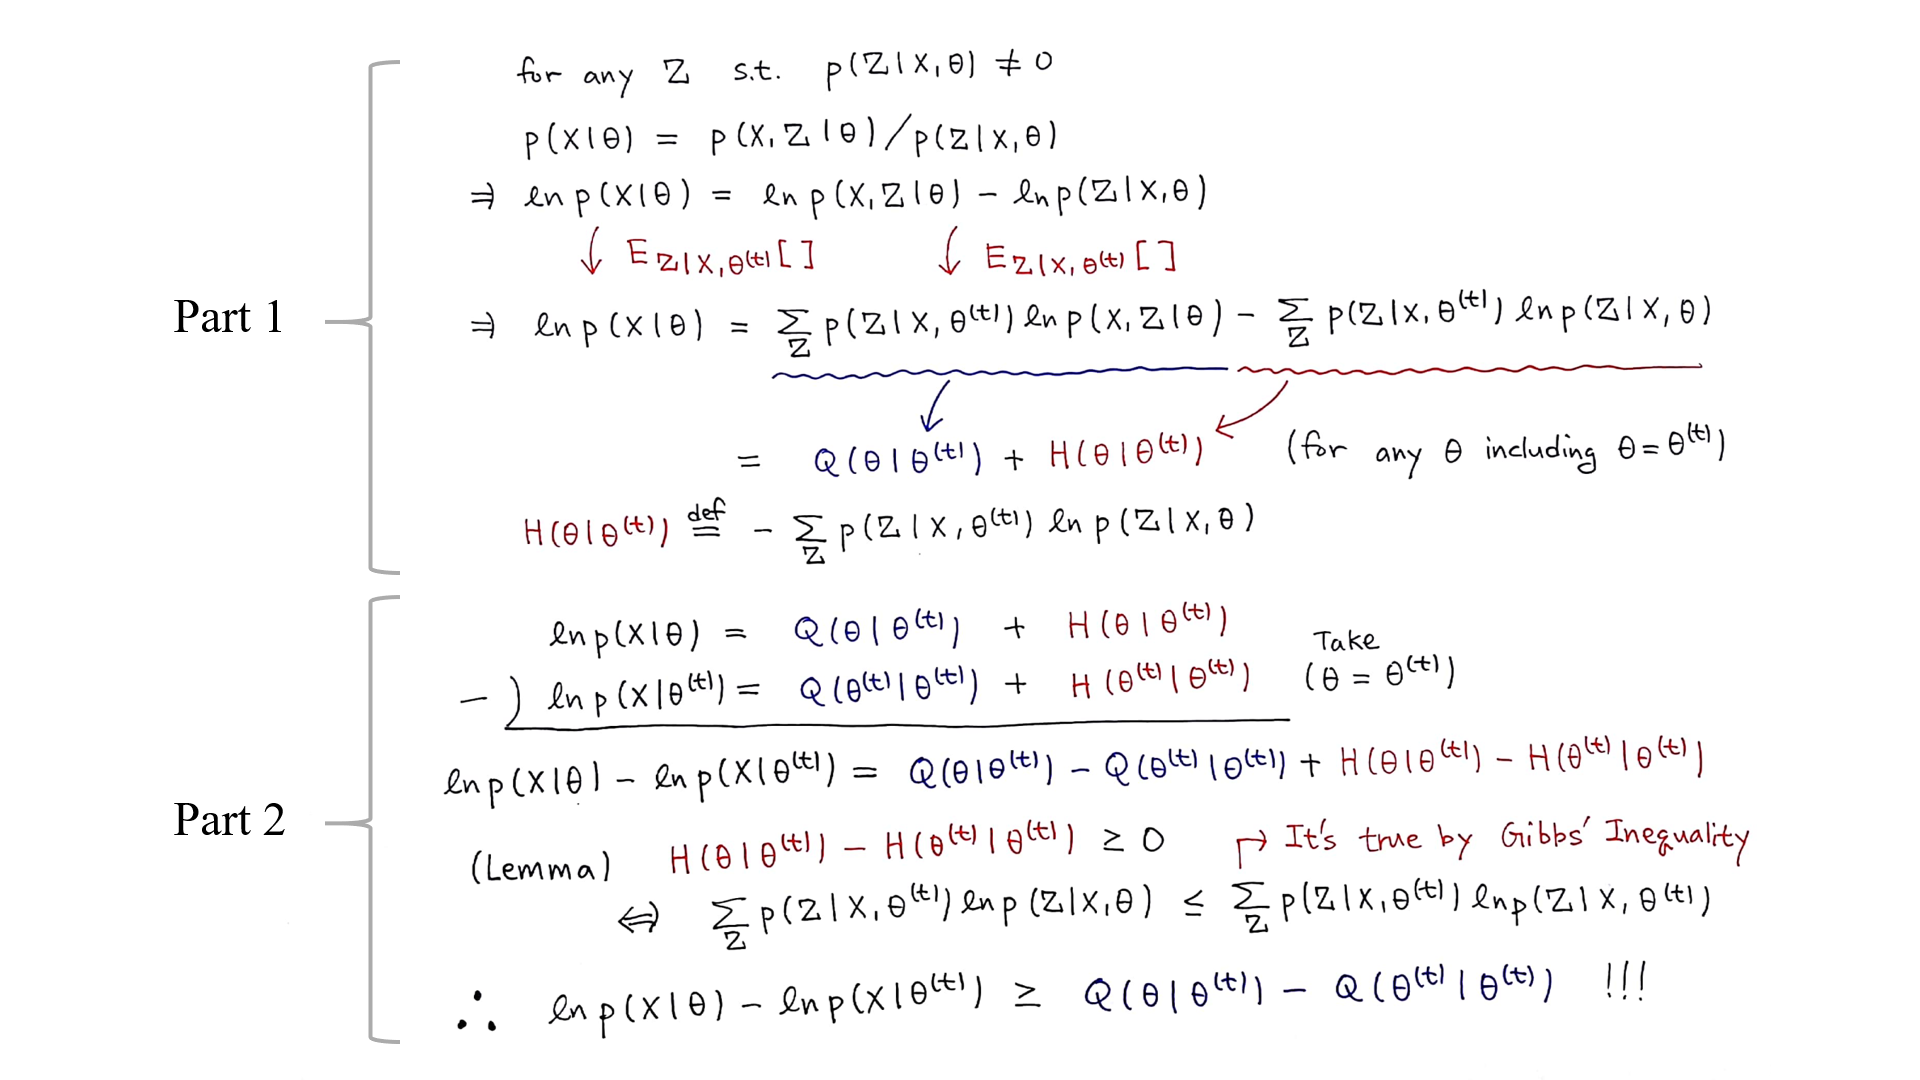 Part 1
for any Z s.t. p(Z|X,θ) ≠ 0
p(X|θ) = p(X,Z|θ)/p(Z|X,θ)
⇒ ln p(X|θ) = ln p(X,Z|θ) − ln p(Z|X,θ)
↓ E_{Z|X,θ^(t)}[ ] ↓ E_{Z|X,θ^(t)}[ ]
⇒ ln p(X|θ) = Σ_Z p(Z|X,θ^(t)) ln p(X,Z|θ) − Σ_Z p(Z|X,θ^(t)) ln p(Z|X,θ)
= Q(θ|θ^(t)) + H(θ|θ^(t)) (for any θ including θ=θ^(t))
H(θ|θ^(t)) def= − Σ_Z p(Z|X,θ^(t)) ln p(Z|X,θ)
Part 2
ln p(X|θ) = Q(θ|θ^(t)) + H(θ|θ^(t))
Take
−) ln p(X|θ^(t)) = Q(θ^(t)|θ^(t)) + H(θ^(t)|θ^(t)) (θ = θ^(t))
ln p(X|θ) − ln p(X|θ^(t)) = Q(θ|θ^(t)) − Q(θ^(t)|θ^(t)) + H(θ|θ^(t)) − H(θ^(t)|θ^(t))
(Lemma) H(θ|θ^(t)) − H(θ^(t)|θ^(t)) ≥ 0 It's true by Gibbs' Inequality
⇔ Σ_Z p(Z|X,θ^(t)) ln p(Z|X,θ) ≤ Σ_Z p(Z|X,θ^(t)) ln p(Z|X,θ^(t))
∴ ln p(X|θ) − ln p(X|θ^(t)) ≥ Q(θ|θ^(t)) − Q(θ^(t)|θ^(t)) !!!